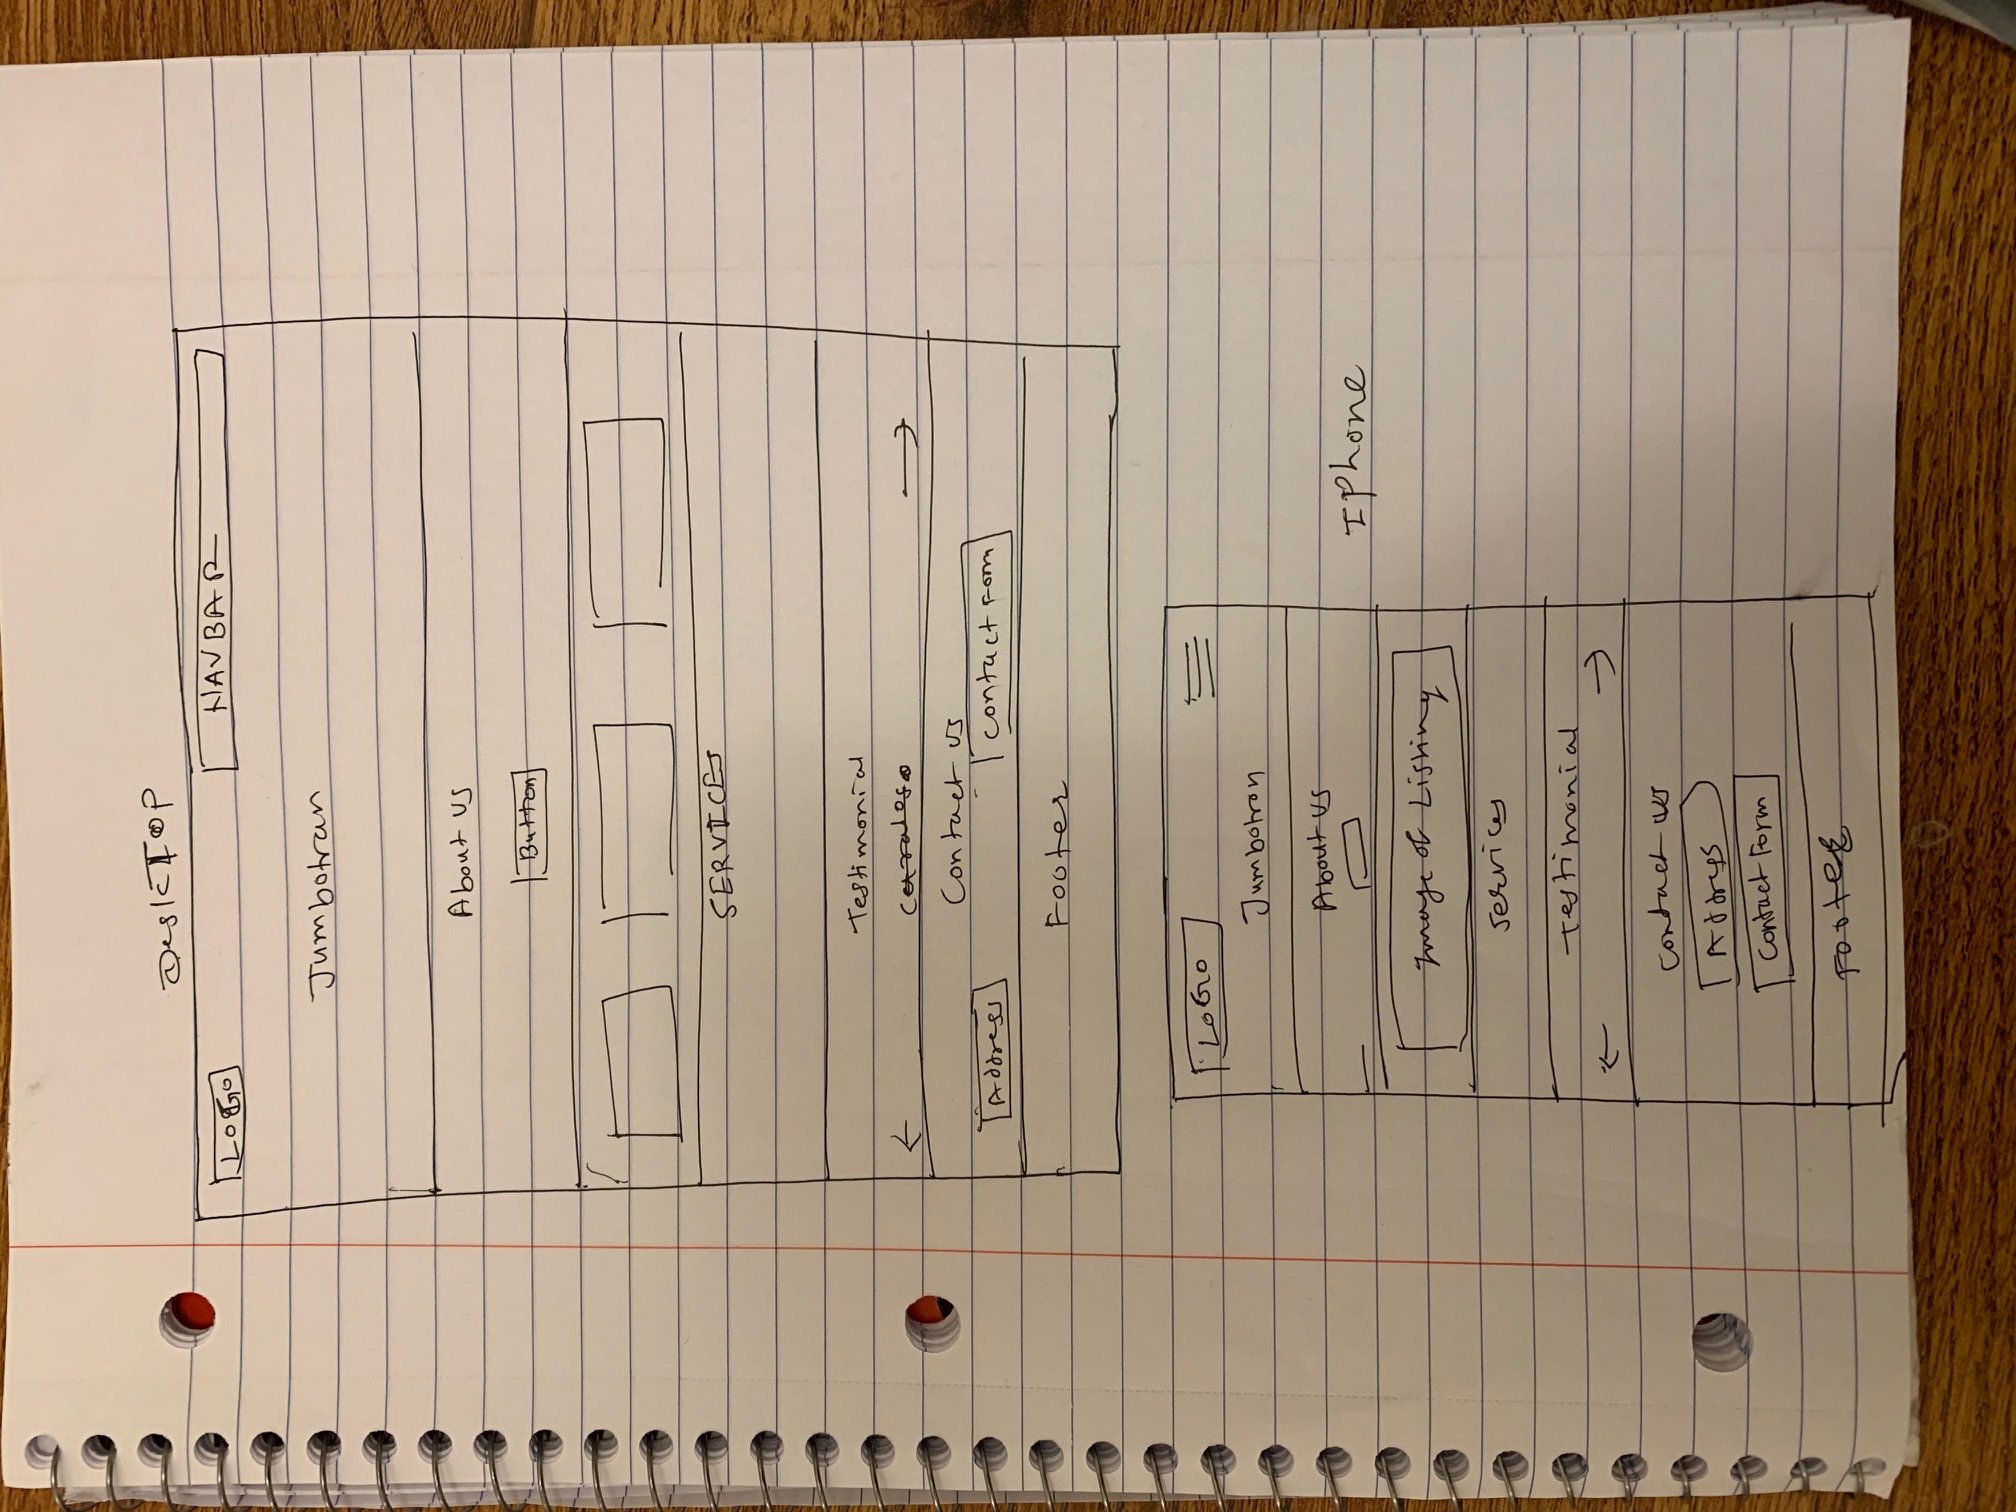 DeskTop
LOGO NAVBAR
Jumbotran
About us
Button
SERVICES
Testimonial
Contact us
Address Contact Form
Footer
LOGO
Jumbotron
About us
IPhone
Image of Listing
Services
Testimonial
Contact us
Address
Contact Form
Footer